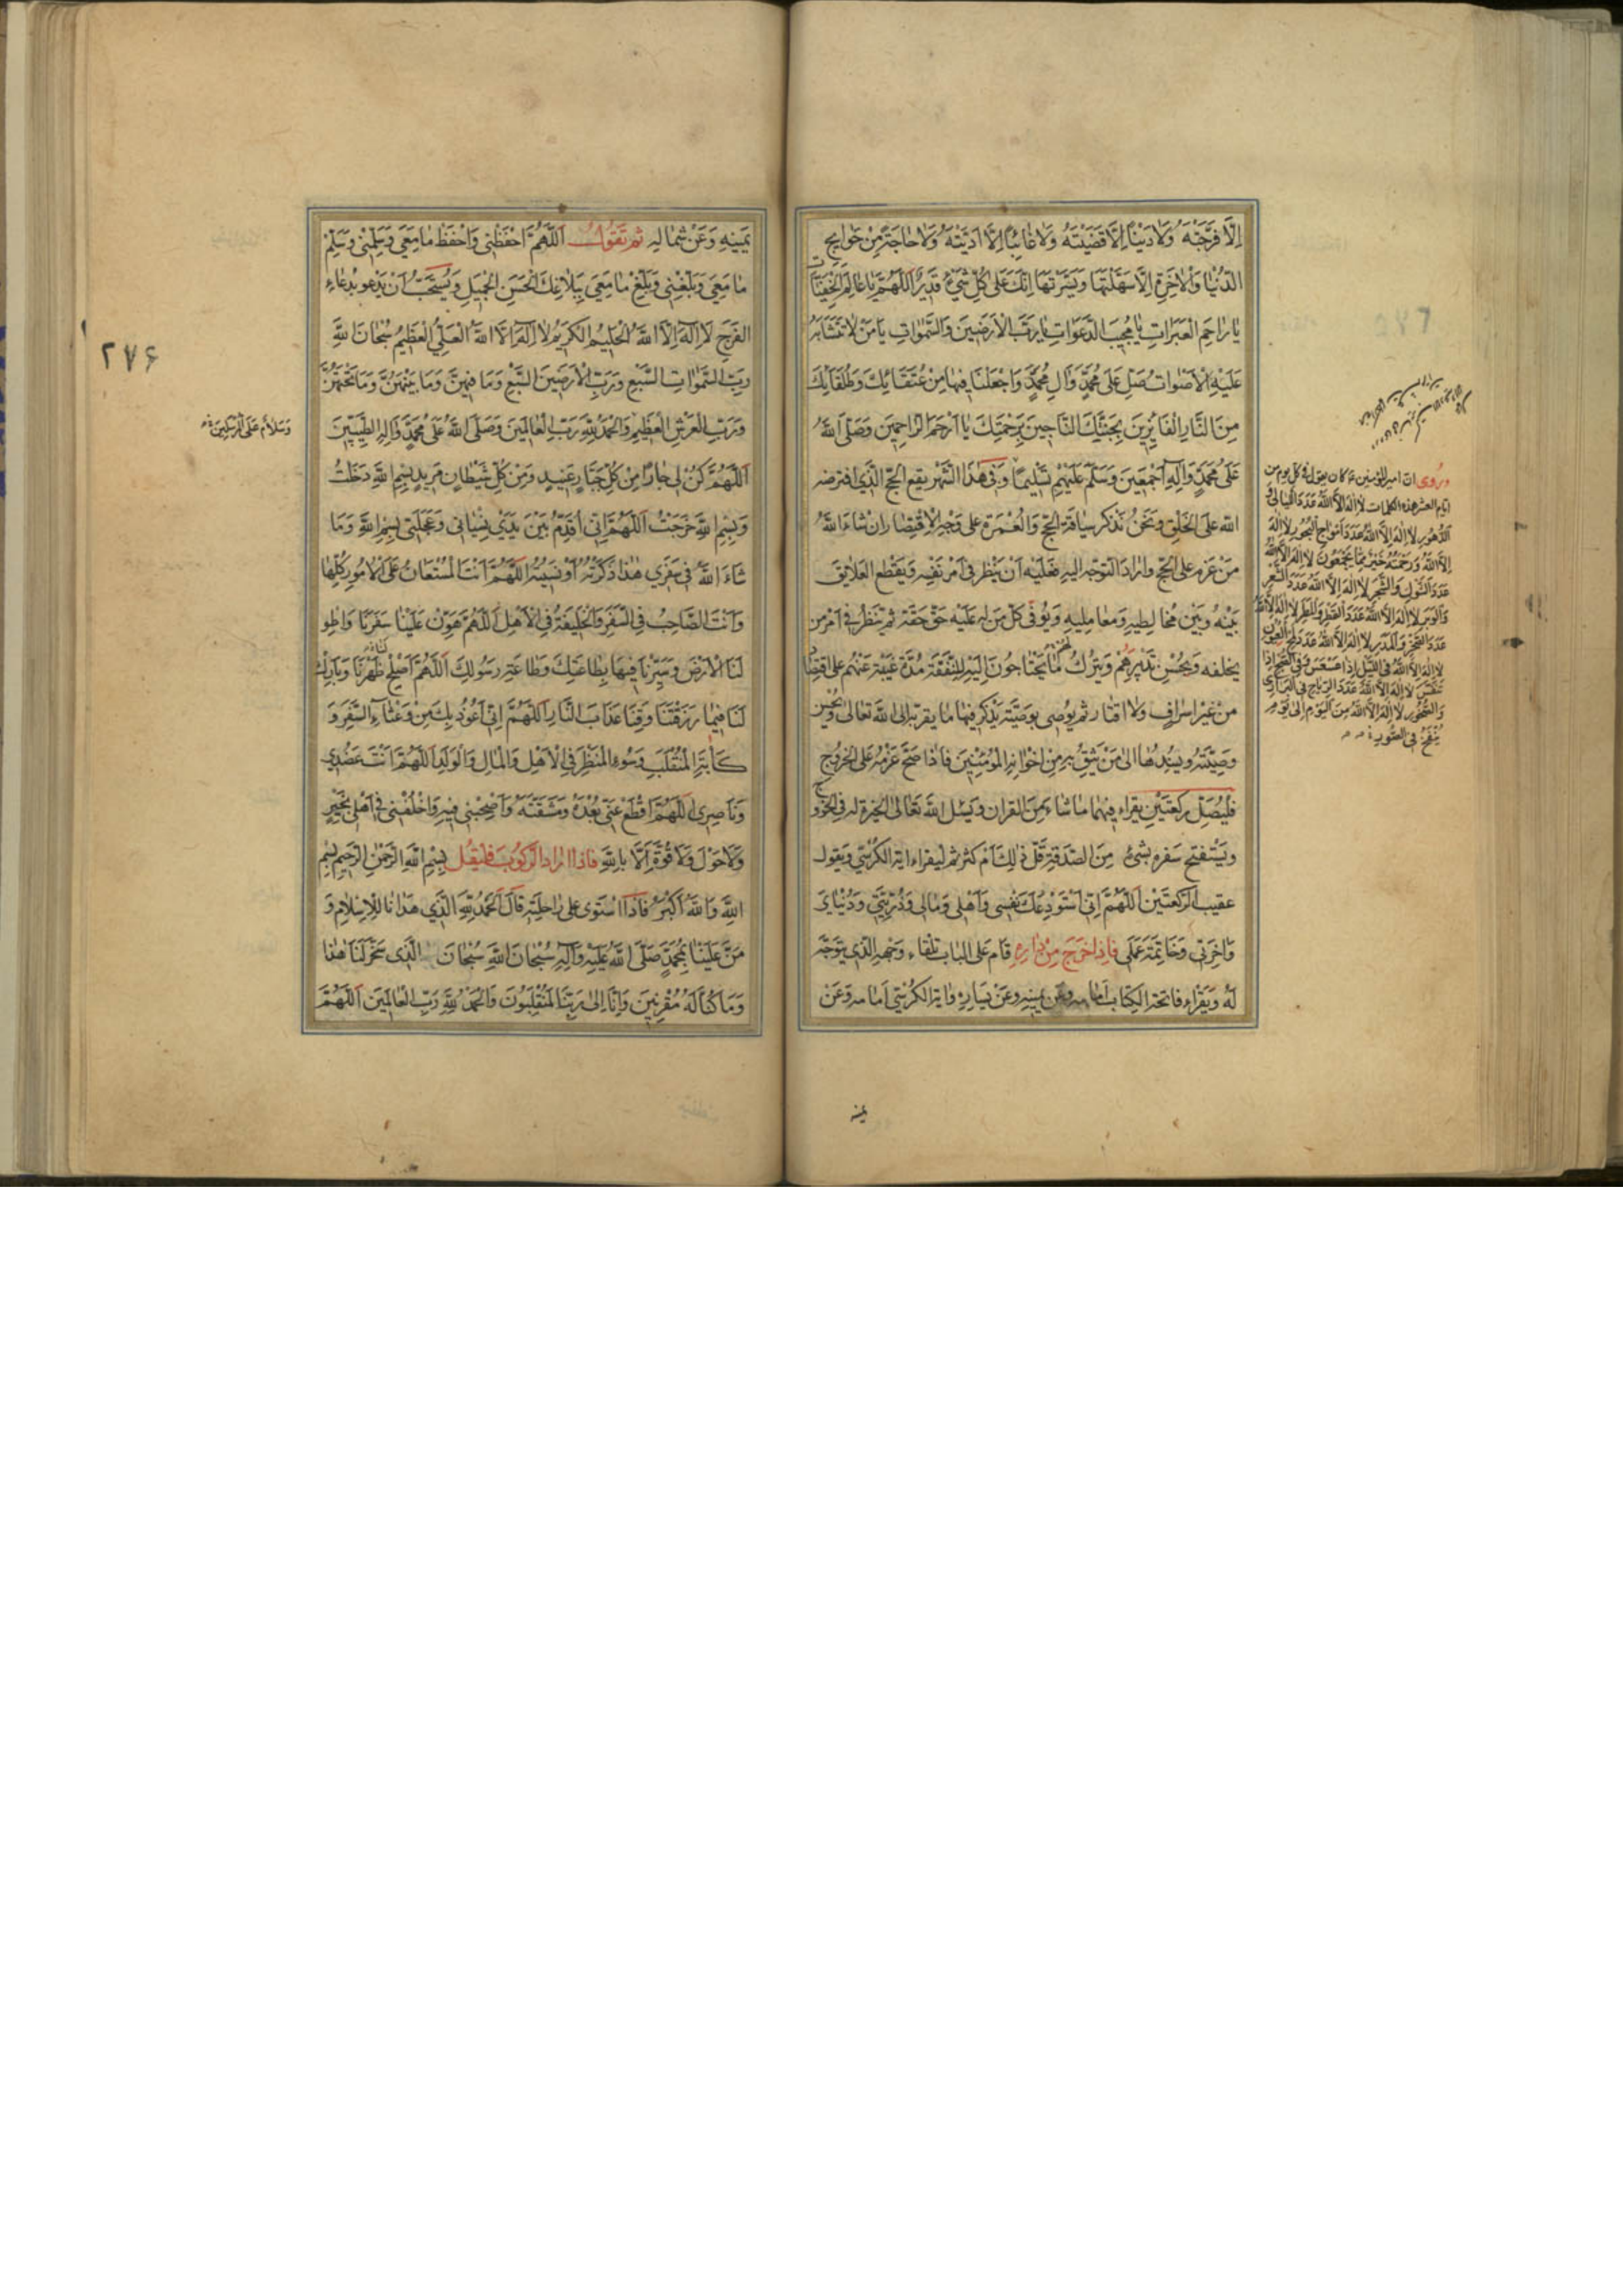 اِلَّا فَرَّجْتَهُ وَلَا دَيْنًا اِلَّا قَضَيْتَهُ وَلَا غَائِبًا اِلَّا اَدَّيْتَهُ وَلَا حَاجَةً مِنْ حَوَائِجِ
الدُّنْيَا وَالْاٰخِرَةِ اِلَّا سَهَّلْتَهَا وَيَسَّرْتَهَا اِنَّكَ عَلٰى كُلِّ شَيْءٍ قَدِيرٌ اَللّٰهُمَّ يَا عَالِمَ الْخَفِيَّاتِ
يَا رَاحِمَ الْعَبَرَاتِ يَا مُجِيبَ الدَّعَوَاتِ يَا رَبَّ الْاَرَضِينَ وَالسَّمٰوَاتِ يَا مَنْ لَا تَتَشَابَهُ
عَلَيْهِ الْاَصْوَاتُ صَلِّ عَلٰى مُحَمَّدٍ وَاٰلِ مُحَمَّدٍ وَاجْعَلْنَا فِيهَا مِنْ عُتَقَائِكَ وَطُلَقَائِكَ
مِنَ النَّارِ الْفَائِزِينَ بِجَنَّتِكَ النَّاجِينَ بِرَحْمَتِكَ يَا اَرْحَمَ الرَّاحِمِينَ وَصَلَّى اللّٰهُ
عَلٰى مُحَمَّدٍ وَاٰلِهِ اَجْمَعِينَ وَسَلَّمَ عَلَيْهِمْ تَسْلِيمًا وَفِي هٰذَا الشَّهْرِ يقع الحج الَّذِي افترضه
الله عَلَى الخَلْقِ وَنَحْنُ نَذْكُر سِيَاقَة الحَجّ وَالْعُمْرَة على وَجْهِ الْاِقْتِصَارِ اِنْ شَاءَ اللّٰهُ
مَنْ عَزَمَ عَلَى الحَجّ وَاَرَادَ التَّوَجُّهَ اِلَيْهِ فَعَلَيْهِ اَنْ يَنْظُرَ فِي اَمْرِ نَفْسِهِ وَيَقْطَعَ العَلَايِقَ
بَيْنَهُ وَبَيْنَ مُخَالِطِيهِ وَمُعَامِلِيهِ وَيُوَفِّي كُلَّ مَنْ لَهُ عَلَيْهِ حَقٌّ حَقَّهُ ثُمَّ يَنْظُرُ فِي اَمْرِ مَن
يخلفه وَيُحْسِنُ تَدْبِيرَهُمْ وَيَتْرُكُ لَهُمْ مَا يَحْتَاجُونَ اِلَيْهِ لِلنَّفَقَةِ مُدَّةَ غَيْبَتِهِ عَنْهُمْ عَلَى اقتِصَادٍ
مِنْ غَيْرِ اِسْرَافٍ وَلَا اقتار ثُمَّ يُوصِي بِوَصِيَّةٍ يَذْكُرُ فِيهَا مَا يُقَرِّبُهُ اِلَى اللّٰهِ تَعَالٰى وَيُحْسِنُ
وَصِيَّتَهُ وَيُسْنِدُهَا اِلٰى مَنْ يَثِقُ بِهِ مِنْ اِخْوَانِهِ الْمُؤْمِنِينَ فَاِذَا صَحَّ عَزْمُهُ عَلَى الْخُرُوجِ
فَلْيُصَلِّ رَكْعَتَيْنِ يَقْرَاُ فِيهِمَا مَا شَاءَ مِنَ القُرْانِ وَيَسْئَلُ اللّٰهَ تَعَالٰى الخيرة له فِي الخُرُوجِ
وَيَسْتَفْتِحُ سَفَرَهُ بِشَيْءٍ مِنَ الصَّدَقَةِ قَلَّ ذٰلِكَ اَمْ كَثُرَ ثُمَّ لْيَقْرَاْ ايَةَ الكُرْسِيِّ وَيَقُولُ
عَقِيبَ الرَّكْعَتَيْنِ اَللّٰهُمَّ اِنِّي اَسْتَوْدِعُكَ نَفْسِي وَاَهْلِي وَمَالِي وَذُرِّيَّتِي وَدُنْيَايَ
وَاٰخِرَتِي وَخَاتِمَةَ عَمَلِي فَاِذَا خَرَجَ مِنْ دَارِهِ قَامَ عَلَى البَابِ تِلْقَاءَ وَجْهِهِ الَّذِي يَتَوَجَّهُ
لَهُ وَيَقْرَاُ فَاتِحَةَ الكِتَابِ اَمَامَهُ وعن يَمِينِهِ وَعَنْ يَسَارِهِ وَايَةَ الكُرْسِيِّ اَمَامَهُ وَعَنْ
وَرُوِيَ اَنَّ امير المؤمنين ع كان يقول في كل يوم من
ايام العشر هذه الكلمات لَا اِلٰهَ اِلَّا اللّٰهُ عَدَدَ اللَّيَالِي وَ
الدُّهُورِ لَا اِلٰهَ اِلَّا اللّٰهُ عَدَدَ اَمْوَاجِ الْبُحُورِ لَا اِلٰهَ
اِلَّا اللّٰهُ وَرَحْمَتُهُ خَيْرٌ مِمَّا يَجْمَعُونَ لَا اِلٰهَ اِلَّا اللّٰهُ
عَدَدَ الشَّوْكِ وَالشَّجَرِ لَا اِلٰهَ اِلَّا اللّٰهُ عَدَدَ الشَّعْرِ
وَالْوَبَرِ لَا اِلٰهَ اِلَّا اللّٰهُ عَدَدَ الْقَطْرِ وَالْمَطَرِ لَا اِلٰهَ اِلَّا اللّٰهُ
عَدَدَ الْحَجَرِ وَالْمَدَرِ لَا اِلٰهَ اِلَّا اللّٰهُ عَدَدَ لَمْحِ الْعُيُونِ
لَا اِلٰهَ اِلَّا اللّٰهُ فِي اللَّيْلِ اِذَا عَسْعَسَ وَفِي الصُّبْحِ اِذَا
تَنَفَّسَ لَا اِلٰهَ اِلَّا اللّٰهُ عَدَدَ الرِّيَاحِ فِي الْبَرَارِي
وَالصُّخُورِ لَا اِلٰهَ اِلَّا اللّٰهُ مِنَ الْيَوْمِ اِلٰى يَوْمِ
يُنْفَخُ فِي الصُّورِ
يمينه
يَمِينِهِ وَعَنْ شِمَالِهِ ثُمَّ تَقُولُ اَللّٰهُمَّ احْفَظْنِي وَاحْفَظْ مَا مَعِيَ وَسَلِّمْنِي وَسَلِّمْ
مَا مَعِيَ وَبَلِّغْنِي وَبَلِّغْ مَا مَعِيَ بِبَلَاغِكَ الْحَسَنِ الْجَمِيلِ وَيُسْتَحَبُّ اَنْ يَدْعُوَ بِدُعَاءِ
الفَرَجِ لَا اِلٰهَ اِلَّا اللّٰهُ الْحَلِيمُ الْكَرِيمُ لَا اِلٰهَ اِلَّا اللّٰهُ الْعَلِيُّ الْعَظِيمُ سُبْحَانَ اللّٰهِ
رَبِّ السَّمٰوَاتِ السَّبْعِ وَرَبِّ الْاَرَضِينَ السَّبْعِ وَمَا فِيهِنَّ وَمَا بَيْنَهُنَّ وَمَا تَحْتَهُنَّ
وَرَبِّ الْعَرْشِ الْعَظِيمِ وَالْحَمْدُ لِلّٰهِ رَبِّ الْعَالَمِينَ وَصَلَّى اللّٰهُ عَلٰى مُحَمَّدٍ وَاٰلِهِ الطَّيِّبِينَ
اَللّٰهُمَّ كُنْ لِي جَارًا مِنْ كُلِّ جَبَّارٍ عَنِيدٍ وَمِنْ كُلِّ شَيْطَانٍ مَرِيدٍ بِسْمِ اللّٰهِ دَخَلْتُ
وَبِسْمِ اللّٰهِ خَرَجْتُ اَللّٰهُمَّ اِنِّي اُقَدِّمُ بَيْنَ يَدَيْ نِسْيَانِي وَعَجَلَتِي بِسْمِ اللّٰهِ وَمَا
شَاءَ اللّٰهُ فِي سَفَرِي هٰذَا ذَكَرْتُهُ اَوْ نَسِيتُهُ اَللّٰهُمَّ اَنْتَ الْمُسْتَعَانُ عَلَى الْاُمُورِ كُلِّهَا
وَاَنْتَ الصَّاحِبُ فِي السَّفَرِ وَالْخَلِيفَةُ فِي الْاَهْلِ اَللّٰهُمَّ هَوِّنْ عَلَيْنَا سَفَرَنَا وَاطْوِ
لَنَا الْاَرْضَ وَسَيِّرْنَا فِيهَا بِطَاعَتِكَ وَطَاعَةِ رَسُولِكَ اَللّٰهُمَّ اَصْلِحْ لَنَا ظَهْرَنَا وَبَارِكْ
لَنَا فِيمَا رَزَقْتَنَا وَقِنَا عَذَابَ النَّارِ اَللّٰهُمَّ اِنِّي اَعُوذُ بِكَ مِنْ وَعْثَاءِ السَّفَرِ وَ
كَاٰبَةِ الْمُنْقَلَبِ وَسُوءِ الْمَنْظَرِ فِي الْاَهْلِ وَالْمَالِ وَالْوَلَدِ اَللّٰهُمَّ اَنْتَ عَضُدِي
وَنَاصِرِي اَللّٰهُمَّ اقْطَعْ عَنِّي بُعْدَهُ وَمَشَقَّتَهُ وَاَصْحِبْنِي فِيهِ وَاخْلُفْنِي فِي اَهْلِي بِخَيْرٍ
وَلَا حَوْلَ وَلَا قُوَّةَ اِلَّا بِاللّٰهِ فَاِذَا اَرَادَ الرُّكُوبَ فَلْيَقُلْ بِسْمِ اللّٰهِ الرَّحْمٰنِ الرَّحِيمِ بِسْمِ
اللّٰهِ وَاللّٰهُ اَكْبَرُ فَاِذَا اسْتَوٰى عَلٰى رَاحِلَتِهِ قَالَ اَلْحَمْدُ لِلّٰهِ الَّذِي هَدَانَا لِلْاِسْلَامِ وَ
مَنَّ عَلَيْنَا بِمُحَمَّدٍ صَلَّى اللّٰهُ عَلَيْهِ وَاٰلِهِ سُبْحَانَ اللّٰهِ سُبْحَانَ الَّذِي سَخَّرَ لَنَا هٰذَا
وَمَا كُنَّا لَهُ مُقْرِنِينَ وَاِنَّا اِلٰى رَبِّنَا لَمُنْقَلِبُونَ وَالْحَمْدُ لِلّٰهِ رَبِّ الْعَالَمِينَ اَللّٰهُمَّ
٢٧۶
وَسَلَامٌ عَلَى الْمُرْسَلِينَ